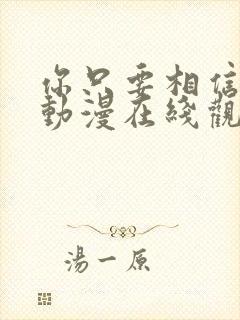 你只要相信
動漫在綫觀
湯一原